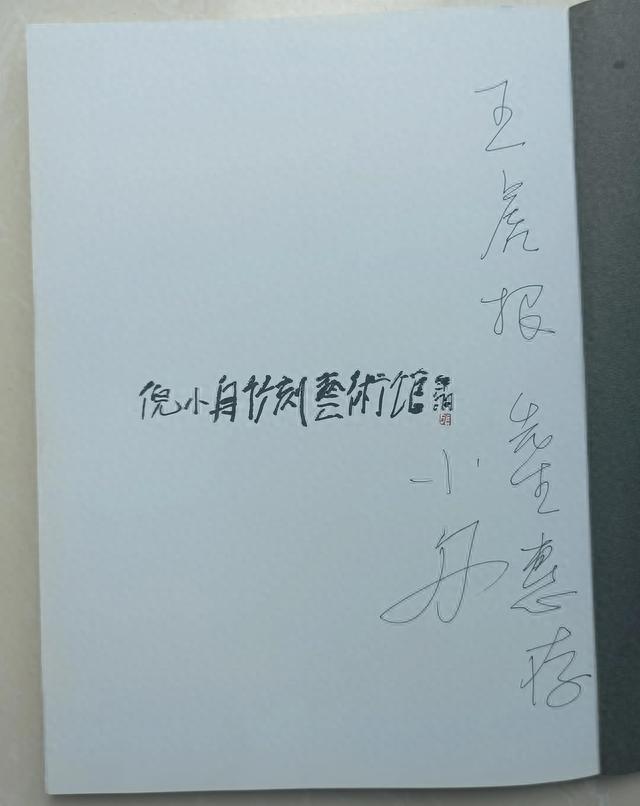 王虎根 先生惠存
小舟
倪小舟竹刻藝術馆